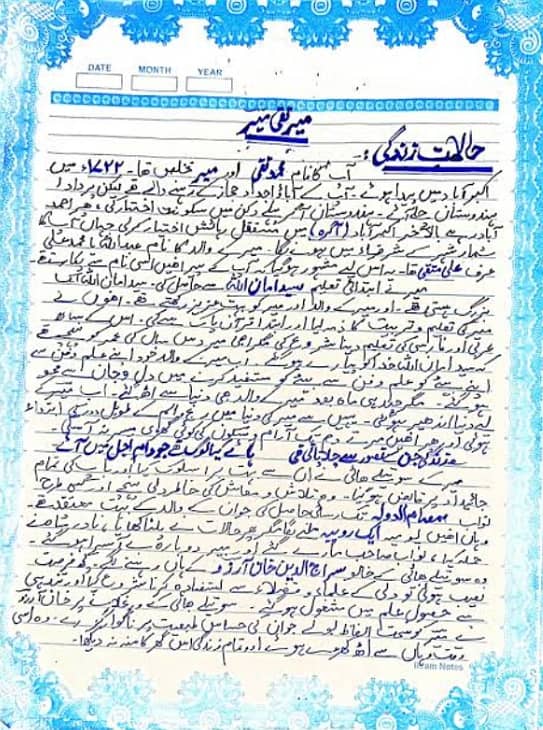 DATE MONTH YEAR
میر تقی میر
حالات زندگی :-
آپ کا نام محمد تقی اور میر تخلص تھا۔ ۱۷۲۲ء میں
اکبر آباد میں پیدا ہوئے۔ آپ کے آباؤ اجداد حجاز کے رہنے والے تھے لیکن پردادا
ہندوستان چلے آئے۔ ہندوستان آکر پہلے دکن میں سکونت اختیار کی، پھر احمد
آباد سے بالآخر اکبر آباد (آگرہ) میں مستقل رہائش اختیار کر لی جہاں آپ کا
شمار شہر کے شرفاء میں ہونے لگا۔ میر کے والد کا نام عبداللہ یا محمد علی
عرف علی متقی تھا۔ یہ اس لیے مشہور ہوگیا کہ آپ کے پیر انھیں اسی نام سے پکارتے تھے۔
میر نے ابتدائی تعلیم سید امان اللہ سے حاصل کی۔ سید امان اللہ ایک
بزرگ ہستی تھے۔ اور میر کے والد اور میر کو بہت عزیز رکھتے تھے۔ انھوں نے
میر کی تعلیم و تربیت کا ذمہ لیا اور ابتدا قرآن پاک سے کی۔ اس کے ساتھ
عربی اور فارسی کی تعلیم دینا شروع کی مگر ابھی میر دس سال کی عمر کو پہنچے تھے
کہ سید امان اللہ خدا کو پیارے ہوگئے۔ اب میر کے والد خود اپنے علم و فن سے
اپنے بیٹے کو علم و فن سے مستفید کرنے میں دل و جان سے محو
ہوگئے۔ مگر چند ہی ماہ بعد میر کے والد بھی دنیا سے اٹھ گئے۔ اب میر کے
لیے دنیا اندھیر ہوگئی۔ یہیں سے میر کی دنیا میں رنج و الم کے طویل دور کی ابتداء
ہوئی اور پھر انھیں مرتے دم تک آرام و سکون کی کوئی گھڑی میسر نہ آ سکی۔
میر کے سوتیلے بھائی نے ان سے بہت برا سلوک کیا اور باپ کی تمام
جائیداد پر قابض ہوگیا۔ وہ تلاش معاش کی خاطر دلی پہنچے اور کسی طرح
نواب صمصام الدولہ تک رسائی حاصل کی جو ان کے والد کے بہت معتقد تھے۔
وہاں انھیں یومیہ ایک روپیہ ملنے لگا مگر پھر حالات نے پلٹا کھایا، نادر شاہ نے
حملہ کیا، نواب صاحب مارے گئے اور میر دوبارہ بے آسرا ہوگئے۔
وہ سوتیلے بھائی کے خالو سراج الدین خان آرزو کے ہاں رہنے لگے۔ کچھ فرصت
نصیب ہوئی تو دلی کے علماء و فضلاء سے استفادہ کرنا شروع کیا اور تندہی
سے حصول علم میں مشغول ہوگئے۔ سوتیلے بھائی کے ورغلانے پر خان آرزو
نے میر کو سخت الفاظ بولے جو ان کی حساس طبیعت پر ناگوار گزرے۔ وہ اسی
وقت وہاں سے اٹھ کھڑے ہوئے اور تمام زندگی اس گھر کا منہ نہ دیکھا۔
Ikram Notes